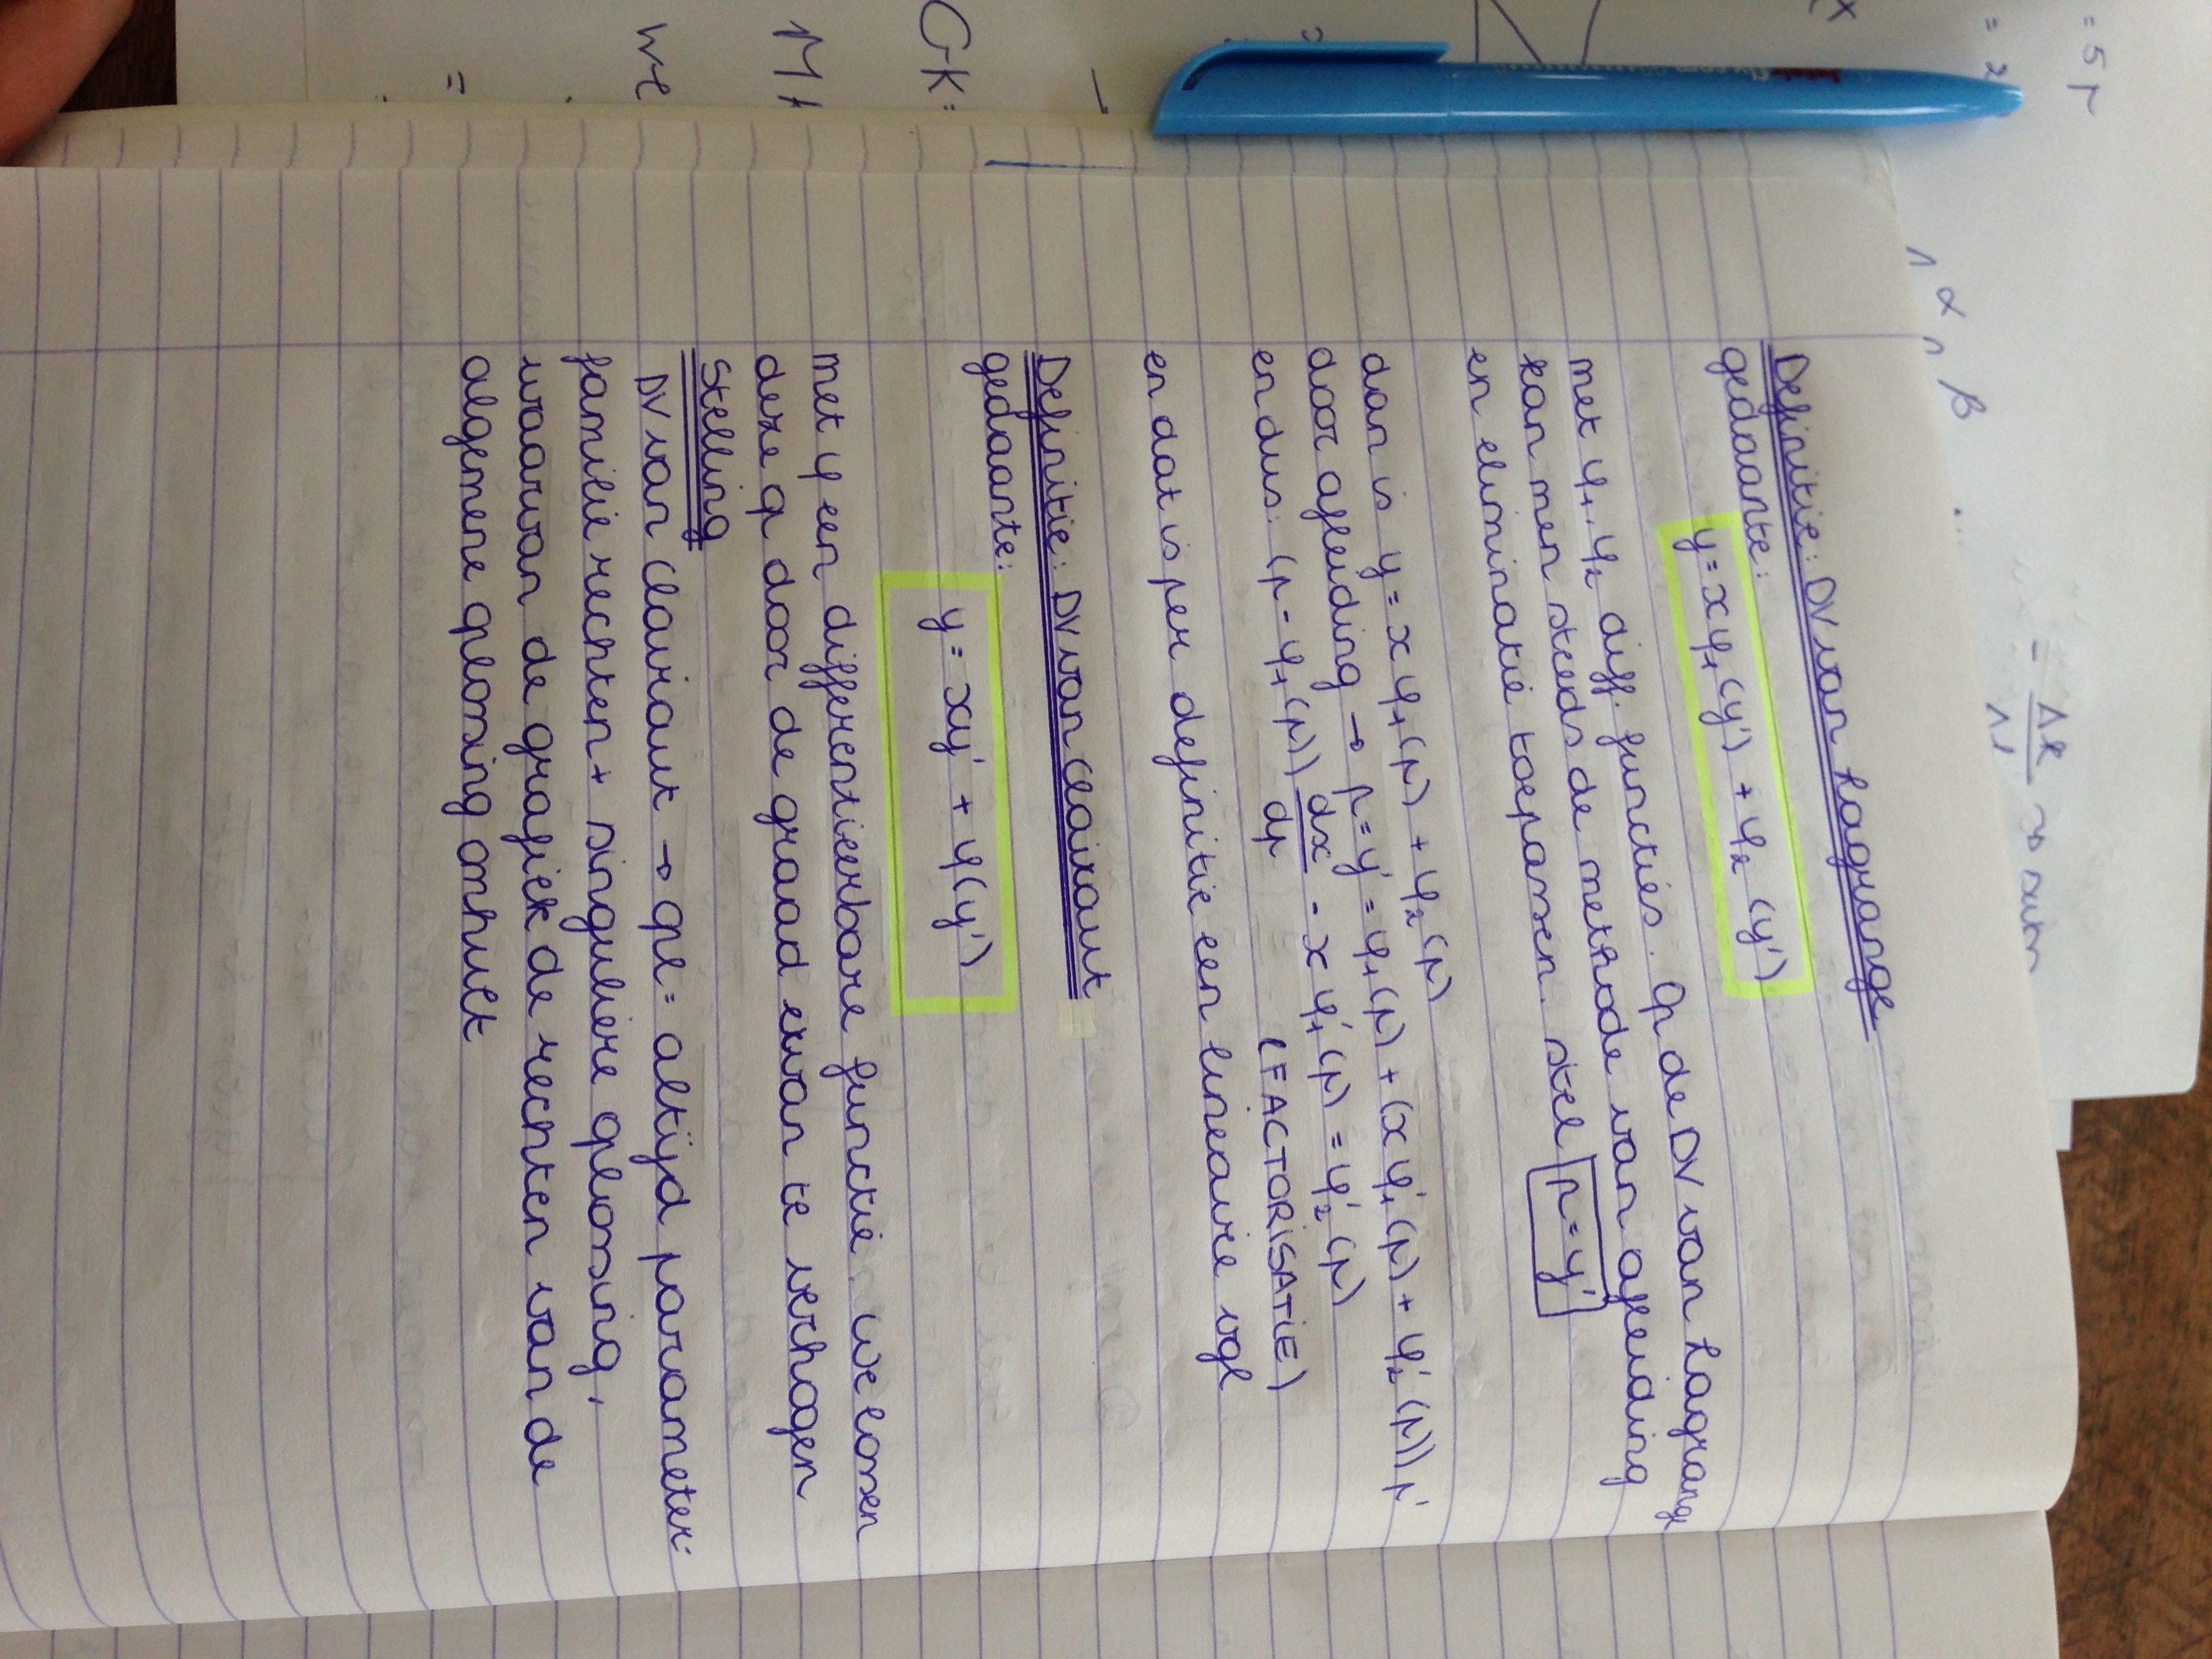 = 5 p
= 2
= Δk / Δl ~> sum
α β
Definitie: DV van Lagrange
gedaante:
y = x φ₁(y') + φ₂ (y')
met φ₁, φ₂ diff. functies. Op de DV van Lagrange
kan men steeds de methode van afleiding
en eliminatie toepassen. stel p = y'
dan is y = x φ₁(p) + φ₂(p)
door afleiding → p = y' = φ₁(p) + (x φ₁'(p) + φ₂'(p)) p'
en dus: (p - φ₁(p)) dx/dp - x φ₁'(p) = φ₂'(p)
(FACTORISATIE)
en dat is per definitie een lineaire vgl
Definitie: DV van Clairaut
gedaante:
y = xy' + φ(y')
met φ een differentieerbare functie. We lossen
deze op door de graad ervan te verhogen
Stelling
DV van Clairaut → opl = altijd parameter-
familie rechten + singuliere oplossing,
waarvan de grafiek de rechten van de
algemene oplossing omhult
GK=
we
=